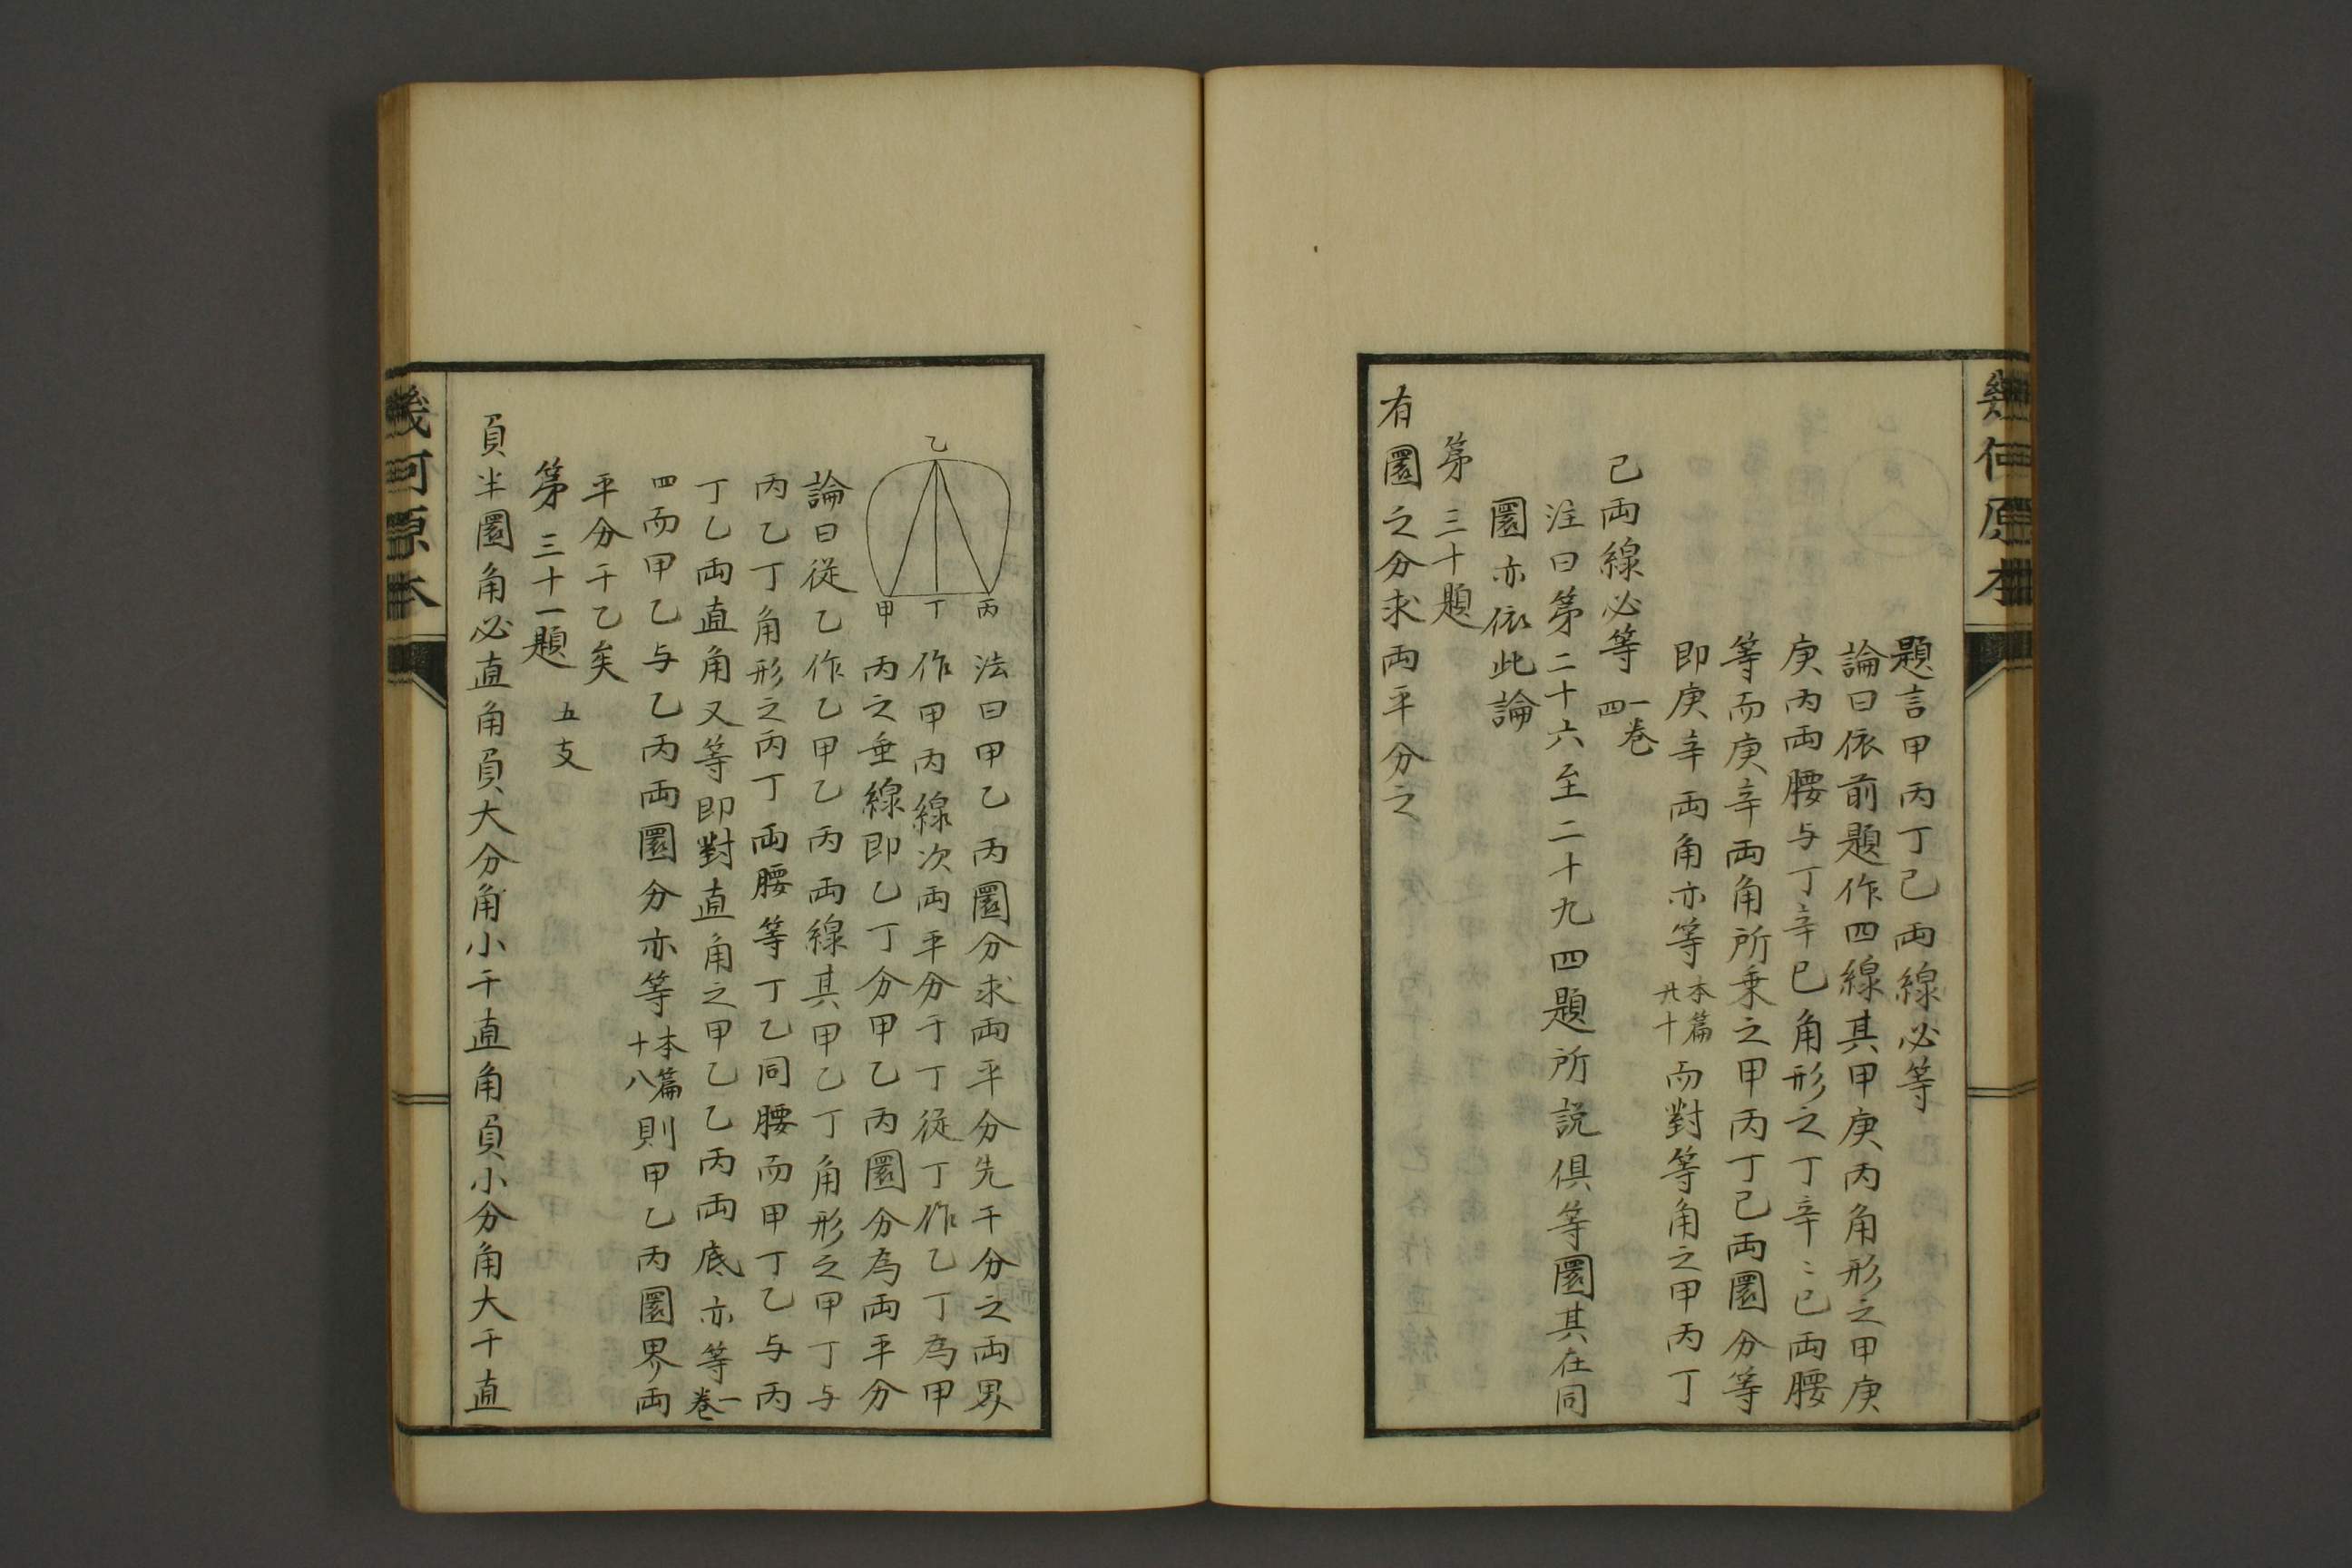 幾何原本
題言甲丙丁己両線必等
論曰依前題作四線其甲庚丙角形之甲庚
庚丙両腰与丁辛巳角形之丁辛〻已両腰
等而庚辛両角所乗之甲丙丁己両圜分等
即庚辛両角亦等本篇廾十而對等角之甲丙丁
己両線必等一巻四
注曰第二十六至二十九四題所説俱等圜其在同
圜亦依此論
第三十題
有圜之分求両平分之
乙
甲丁丙
法曰甲乙丙圜分求両平分先干分之両界
作甲丙線次両平分于丁従丁作乙丁為甲
丙之垂線即乙丁分甲乙丙圜分為両平分
論曰従乙作乙甲乙丙両線其甲乙丁角形之甲丁与
丙乙丁角形之丙丁両腰等丁乙同腰而甲丁乙与丙
丁乙両直角又等即對直角之甲乙乙丙両底亦等一巻
四而甲乙与乙丙両圜分亦等本篇十八則甲乙丙圜界両
平分干乙矣
第三十一題 五支
負半圜角必直角負大分角小干直角負小分角大干直
幾何原本